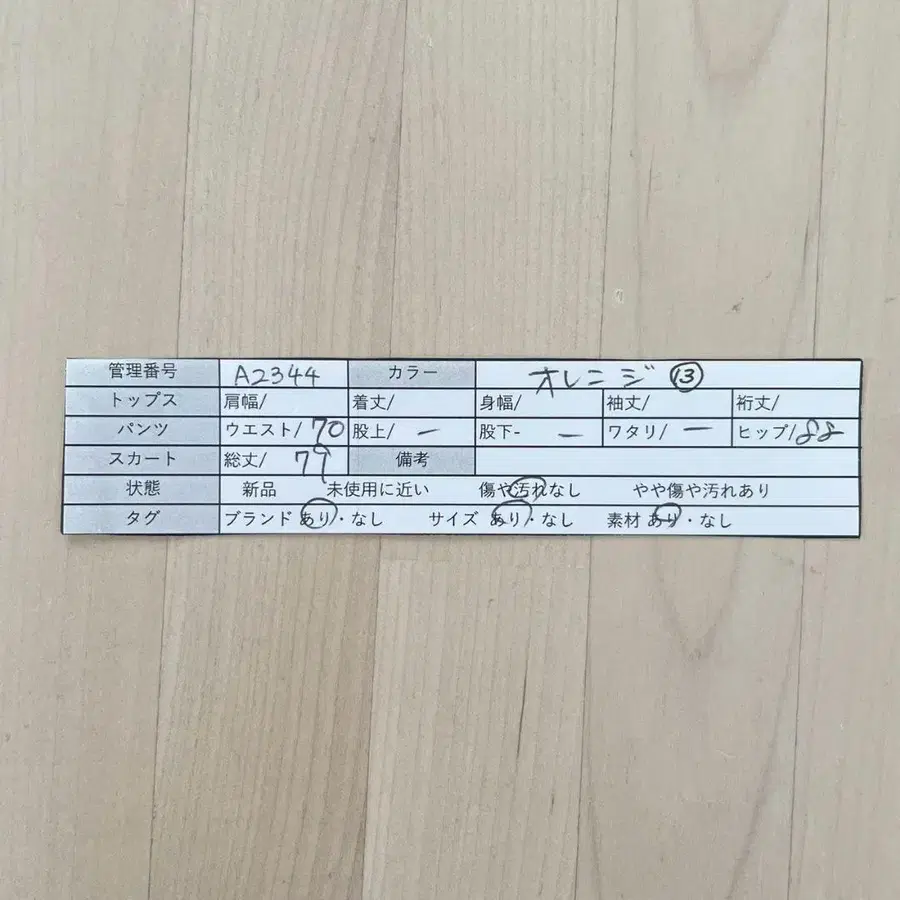 管理番号 A2344 カラー オレンジ ⑬
トップス 肩幅/ 着丈/ 身幅/ 袖丈/ 裄丈/
パンツ ウエスト/ 70 股上/ ー 股下- ー ワタリ/ ー ヒップ/88
スカート 総丈/ 79 備考
状態 新品 未使用に近い 傷や汚れなし やや傷や汚れあり
タグ ブランド あり・なし サイズ あり・なし 素材 あり・なし